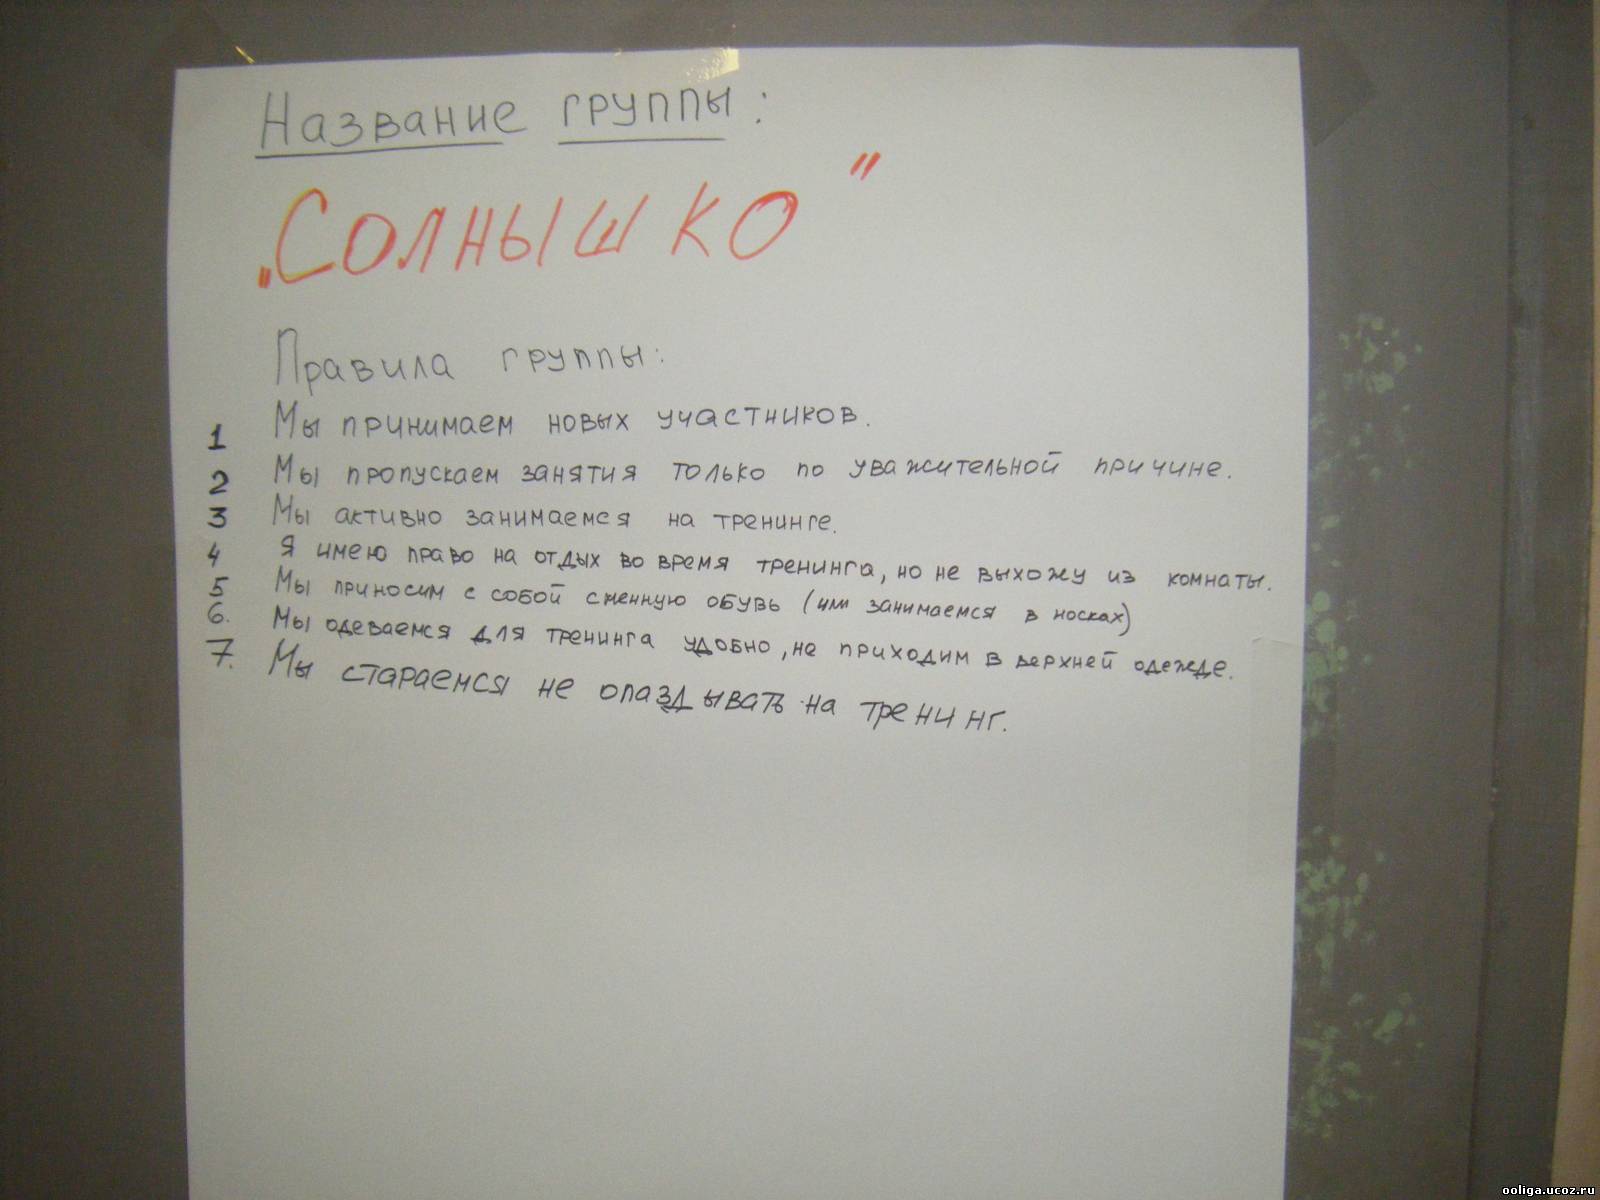 Название группы:
„Солнышко"
Правила группы:
1 Мы принимаем новых участников.
2 Мы пропускаем занятия только по уважительной причине.
3 Мы активно занимаемся на тренинге.
4 Я имею право на отдых во время тренинга, но не выхожу из комнаты.
5 Мы приносим с собой сменную обувь (или занимаемся в носках)
6. Мы одеваемся для тренинга удобно, не приходим в верхней одежде.
7. Мы стараемся не опаздывать на тренинг.
ooliga.ucoz.ru